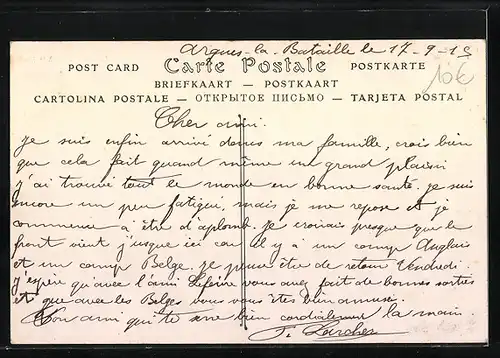 Arques-la-Bataille le 17-9-15
10€
POST CARD Carte Postale POSTKARTE
BRIEFKAART — POSTKAART
CARTOLINA POSTALE — ОТКРЫТОЕ ПИСЬМО — TARJETA POSTAL
Cher ami.
je suis enfin arrivé dans ma famille, crois bien
que cela fait quand même un grand plaisir
j'ai trouvé tout le monde en bonne santé. je suis
encore un peu fatigué, mais je me repose et je
commence a être d'aplomb. je croirais presque que le
front vient jusque ici car il y a un camp Anglais
et un camp Belge. je pense être de retour Vendredi.
j'espère qu'avec l'ami vous avez fait de bonnes sorties
et que avec les Belges vous vous êtes bien amusé.
Ton ami qui te serre bien cordialement la main.